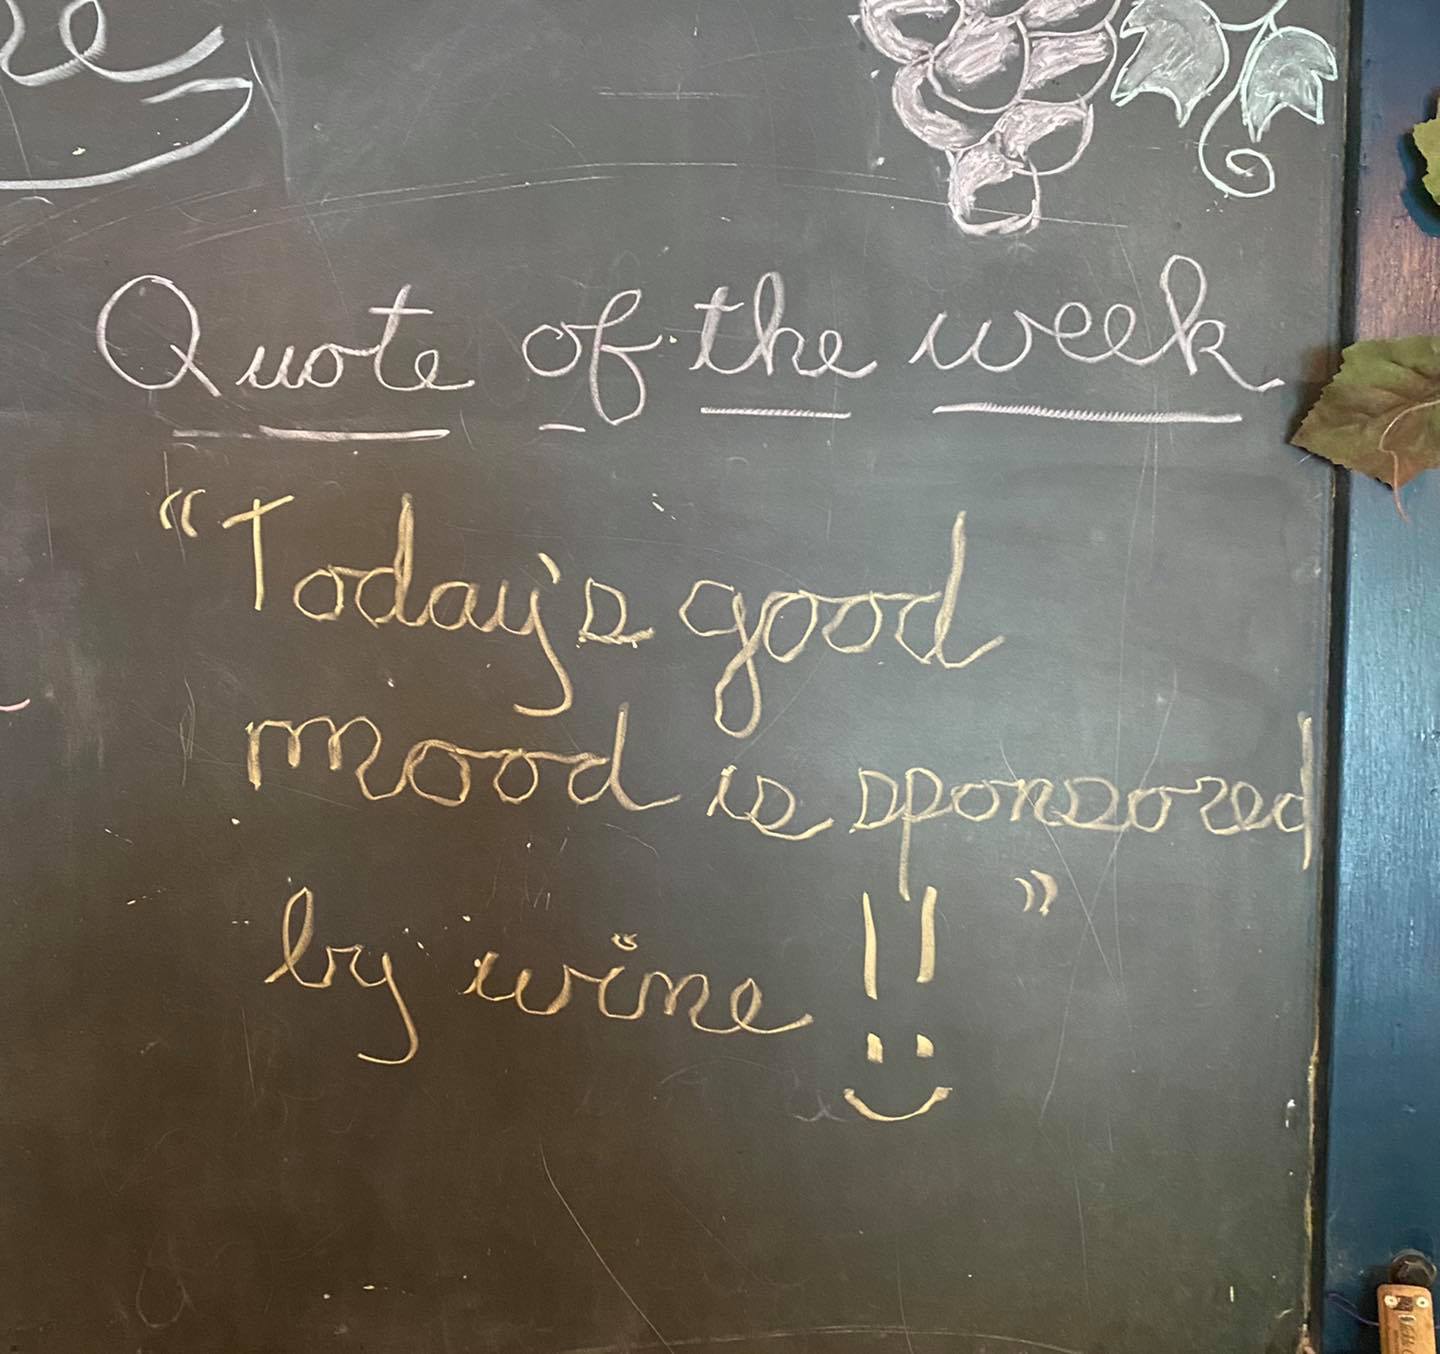 Quote of the week
"Today's good
mood is sponsored
by wine !! "